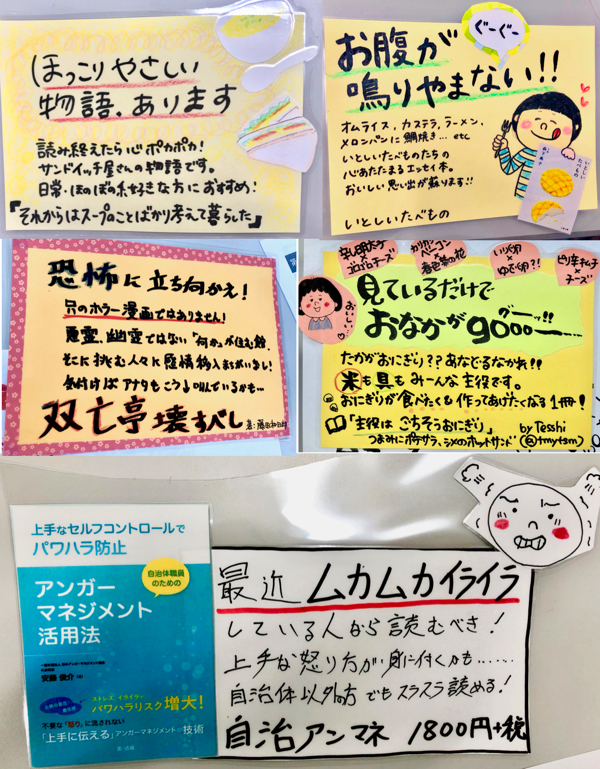 ほっこりやさしい
物語、あります
読み終えたら心ポカポカ!
サンドイッチ屋さんの物語です。
日常・ほのぼの系好きな方におすすめ!
『それからはスープのことばかり考えて暮らした』
ぐーぐー
お腹が
鳴りやまない!!
オムライス、カステラ、ラーメン、
メロンパンに鯛焼き…etc
いとしいたべものたちの
心あたたまるエッセイ本。
おいしい思い出が蘇ります!!
いとしいたべもの
いとしい
たべもの
恐怖に立ち向かえ!
只のホラー漫画ではありません!
悪霊、幽霊ではない「何か」が住む館、
そこに挑む人々に感情移入まちがいなし!
気付けばアナタもこう叫んでいるかも…
双亡亭壊すべし
著:藤田和日郎
辛し明太子
×
ゴロゴロチーズ
カリカリ
ベーコン
×
春色菜の花
いり卵
×
ゆで卵?!
ピリ辛キムチ
×
チーズ
おいしい…
見ているだけで
おなかがgooo—
グーッ!!
たかがおにぎり??あなどるなかれ!!
米も具もみーんな主役です。
おにぎりが食べたくも作ってあげたくなる1冊!
「主役はごちそうおにぎり」 by Tesshi
つまみにポテサラ、シメのホットサンド (@tmytsm)
上手なセルフコントロールで
パワハラ防止
自治体職員
のための
アンガー
マネジメント
活用法
安藤 俊介
ストレス イライラ
パワハラリスク増大!
不要な「怒り」に流されない
「上手に伝える」アンガーマネジメントの技術
最近ムカムカイライラ
している人なら読むべき!
上手な怒り方が身に付くかも……
自治体以外の方でもスラスラ読める!
自治アンマネ 1800円+税